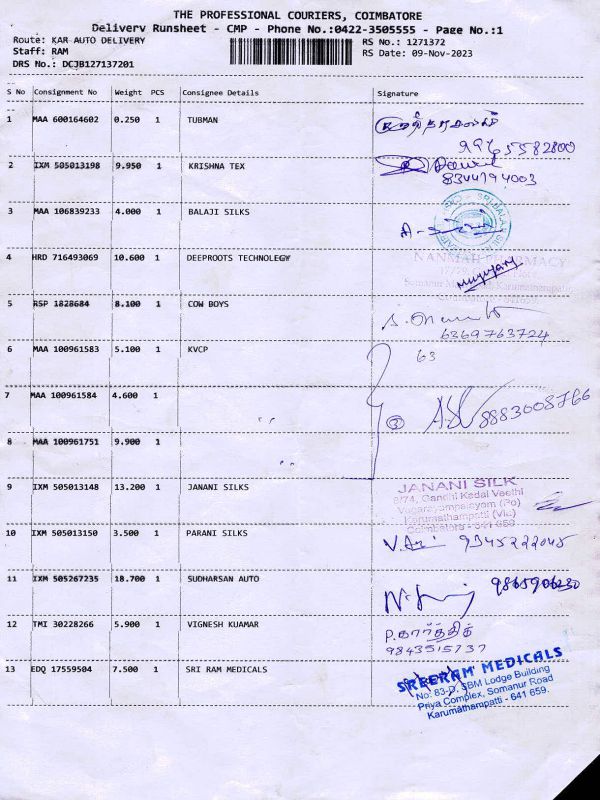 THE PROFESSIONAL COURIERS, COIMBATORE
Delivery Runsheet - CMP - Phone No.:0422-3505555 - Page No.:1
Route: KAR AUTO DELIVERY
RS No.: 1271372
Staff: RAM
RS Date: 09-Nov-2023
DRS No.: DCJB127137201
S No Consignment No Weight PCS Consignee Details Signature
1 MAA 600164602 0.250 1 TUBMAN
2 IXM 505013198 9.950 1 KRISHNA TEX
8344794003
3 MAA 106839233 4.000 1 BALAJI SILKS
4 HRD 716493069 10.600 1 DEEPROOTS TECHNOLEGY
NANMAH PHARMACY
5 RSP 1828684 8.100 1 COW BOYS
6369763724
6 MAA 100961583 5.100 1 KVCP
63
7 MAA 100961584 4.600 1
③ 8883008766
8 MAA 100961751 9.900 1
9 IXM 505013148 13.200 1 JANANI SILKS
JANANI SILK
8/74, Gandhi Kadai Veethi
Vagarayampalayom (Po)
Karumathampatti (Via)
Coimbatore - 641 659
10 IXM 505013150 3.500 1 PARANI SILKS
9345222045
11 IXM 505267235 18.700 1 SUDHARSAN AUTO
9865906230
12 TMI 30228266 5.900 1 VIGNESH KUAMAR
P. கார்த்திக்
9843515737
13 EDQ 17559504 7.500 1 SRI RAM MEDICALS
SREERAM MEDICALS
No: 83-D, SBM Lodge Building
Priya Complex, Somanur Road
Karumathampatti - 641 659.